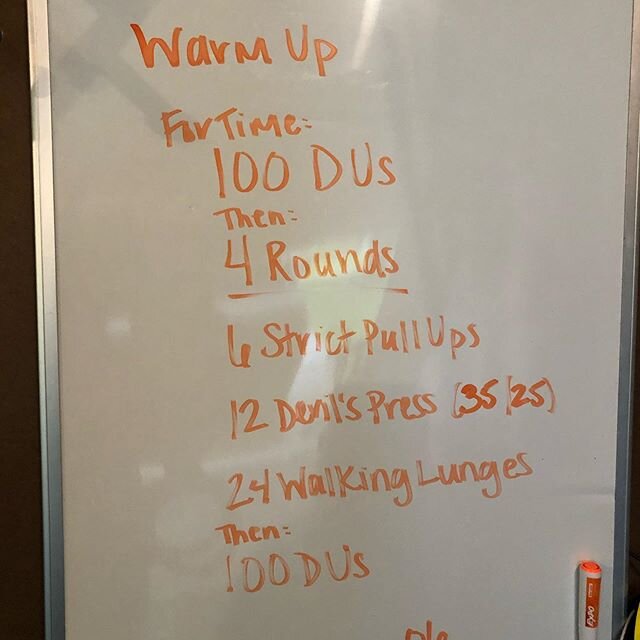 Warm Up
For Time:
100 DUs
Then:
4 Rounds
6 Strict Pull Ups
12 Devil's Press (35/25)
24 Walking Lunges
Then:
100 DUs
EXPO